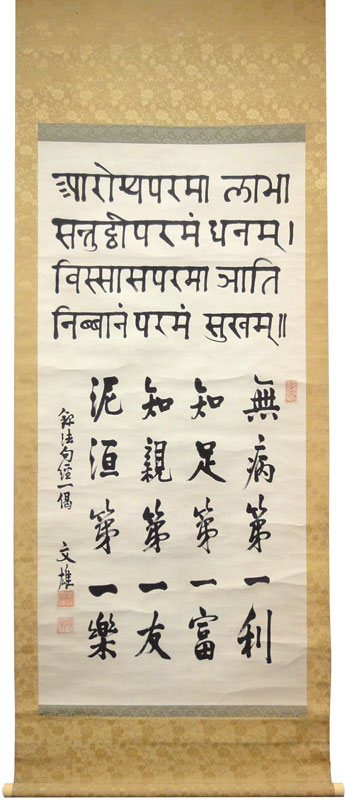 आरोग्यपरमा लाभा
सन्तुट्ठीपरमं धनम् ।
विस्सासपरमा ञाति
निब्बानं परमं सुखम् ॥
無病第一利
知足第一富
知親第一友
泥洹第一樂
錄法句經一偈 文雄